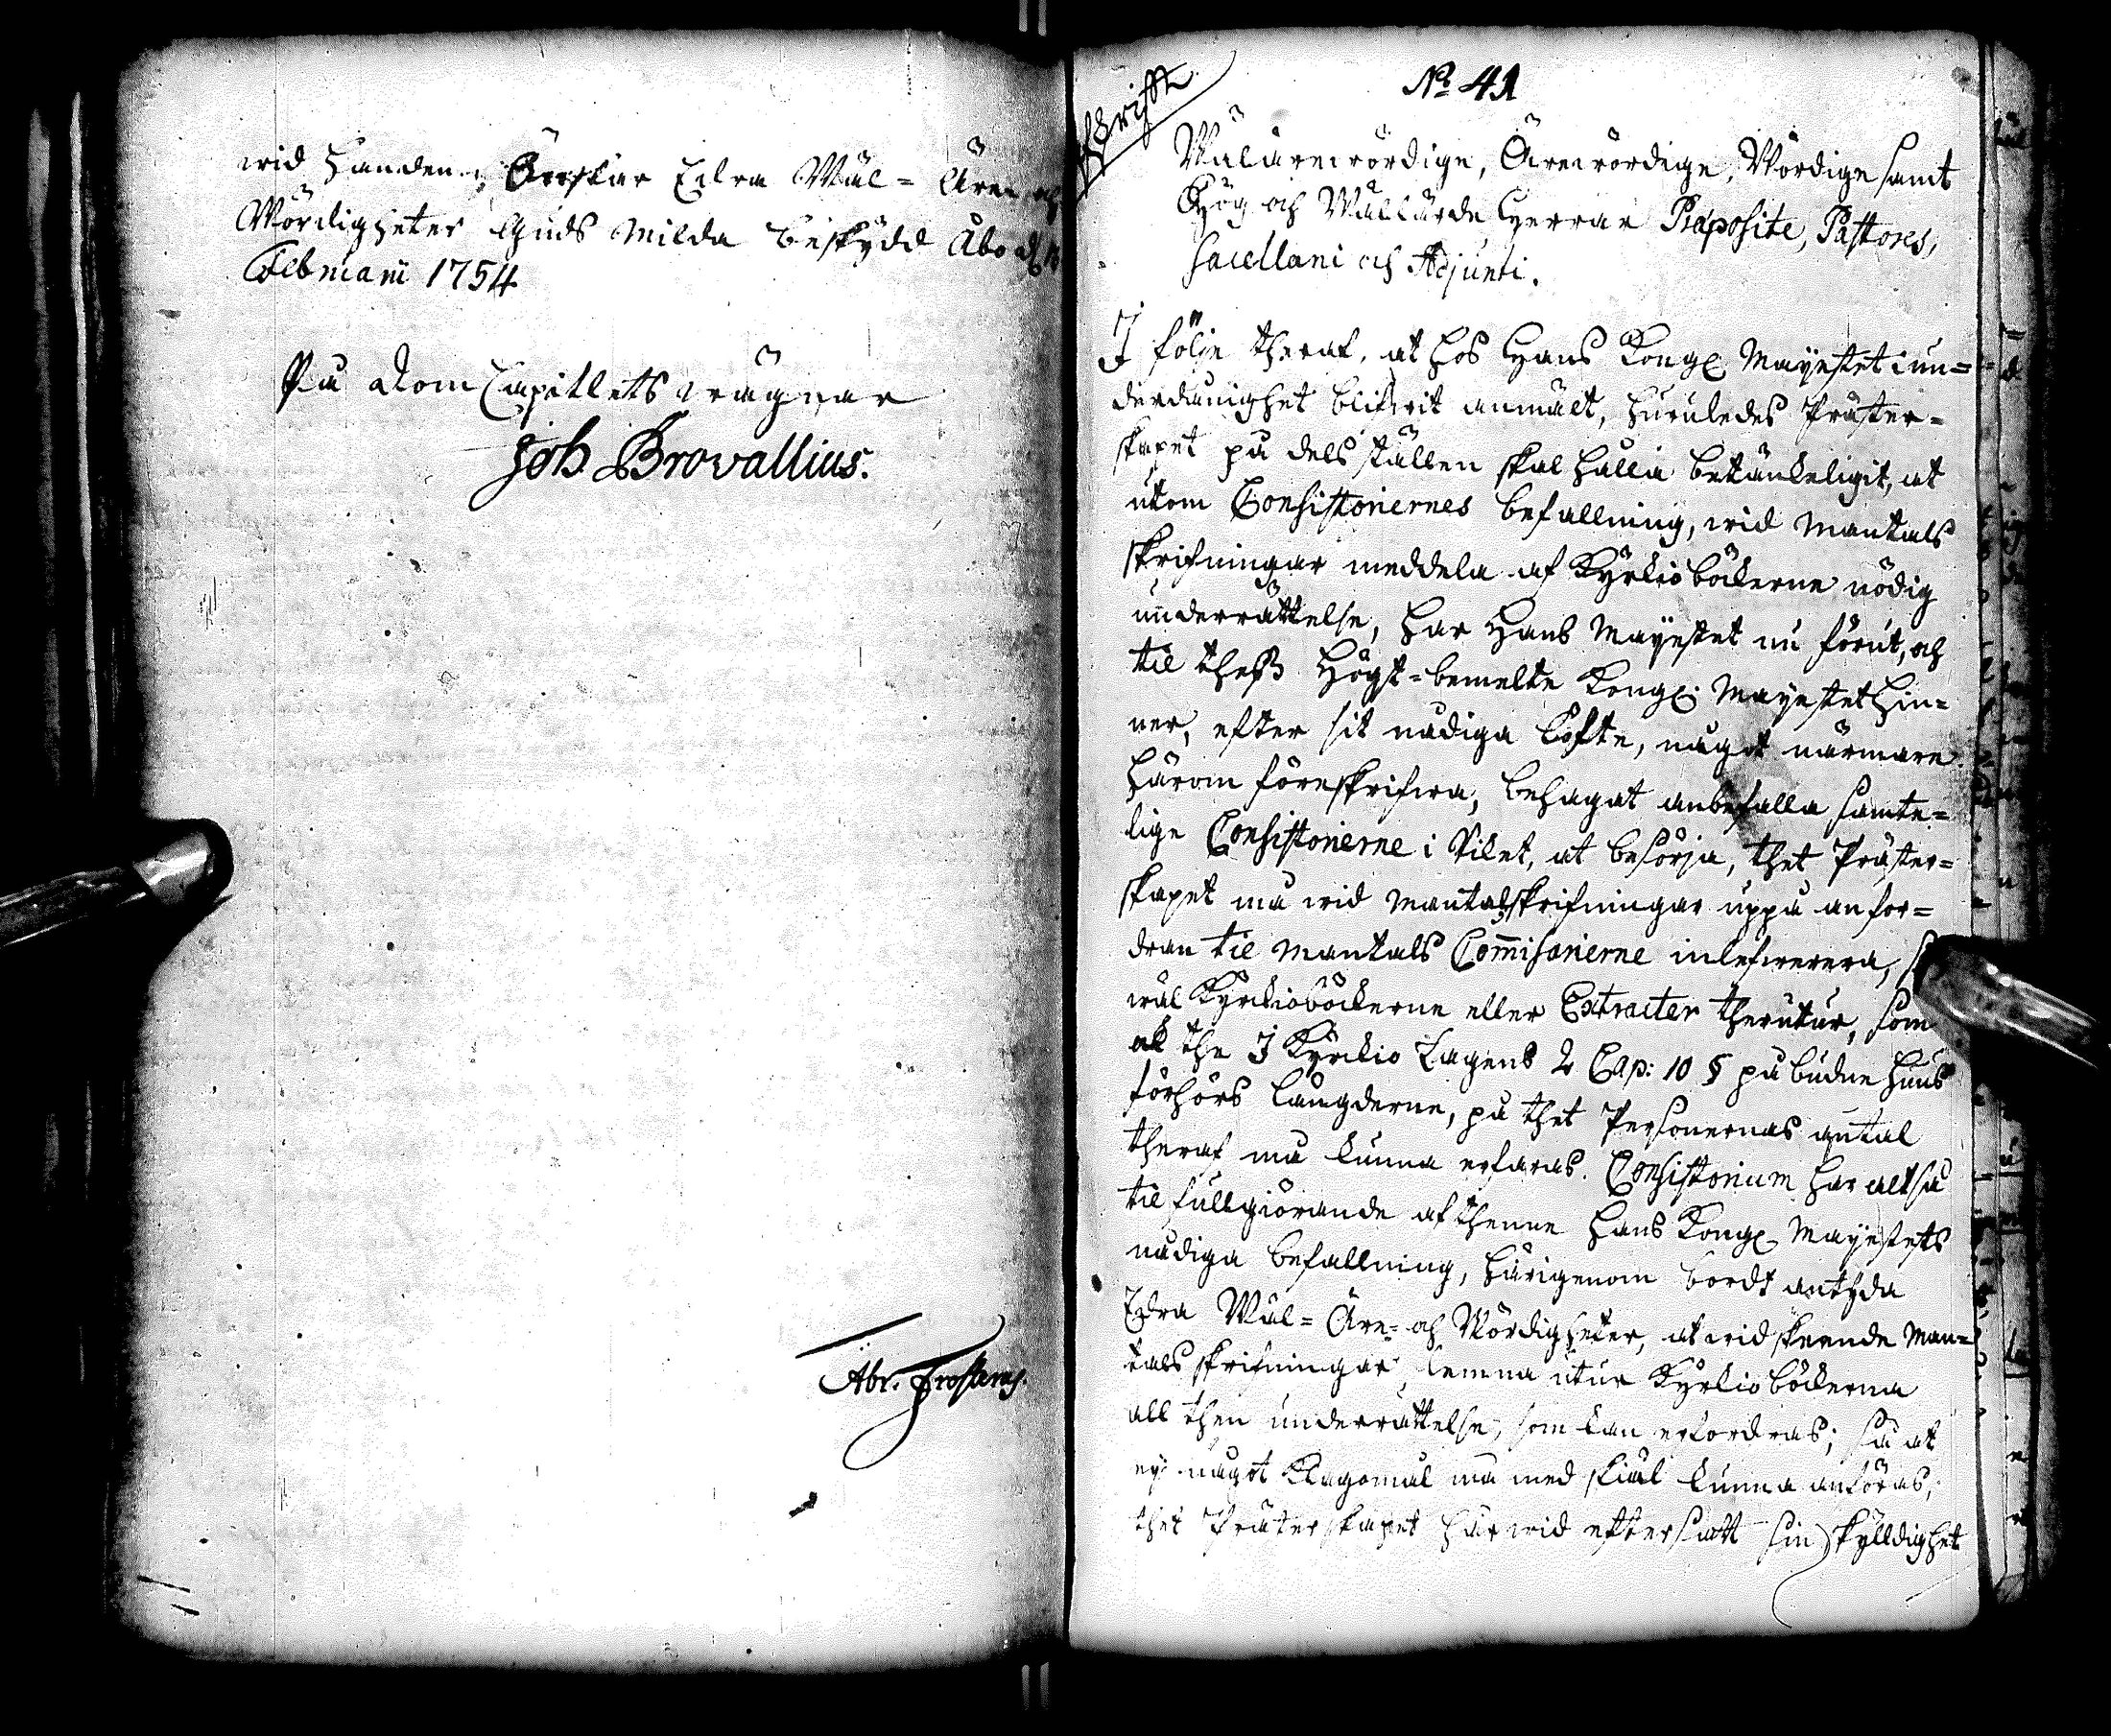 wid handen; Önskar Edra Wäl= Äre- och
Wördigheter Guds milda beskydd Åbo d.
Februarii 1754
På Dom Capitlets wägnar
Joh Browallius.
Abr. Frosterus.
Afskrifft
No 41
Wälärewördige, Ärewördige, Wördige samt
Hög och Wällärde Herrar Præposite, Pastores,
Sacellani och Adjuncti.
I följe theraf, at hos Hans Kongl. Mayestet i un=
derdånighet blifwit anmält, huruledes Präster=
skapet på dels ställen skal hålla betänkeligit, at
utom Consistoriernes befallning, wid Mantals
skrifningar meddela af Kyrkioböckerne nödig
underrättelse, har Hans Mayestet nu förut, och
til thess Högst-bemelte Kongl. Mayestet hin=
ner, efter sit nådiga löfte, något närmare
härom föreskrifwa, behagat anbefalla samte=
lige Consistorierne i Riket, at besörja, thet Präster=
skapet må wid Mantalsskrifningar uppå anfor=
dran til Mantals Commissarierne inlefwerera, så
wäl Kyrckioböckerne eller Extracter therutur, som
ock the i Kyrckio Lagens 2 Cap: 10 § påbudne Huus
förhörs längderne, på thet Personernas antal
theraf må kunna erfaras. Consistorium har altså
til fullgiörande af thenne Hans Kongl. Mayestets
nådiga befallning, härigenom bordt antyda
Edra Wäl= Äre- och Wördigheter, at wid skeende Man=
tals skrifningar, lemna utur Kyrkioböckerna
all then underrättelse, som kan erfordras; så at
ey något Klagomål må med skiäl kunna anföras,
thet Prästerskapet härwid eftersatt sin skylldighet